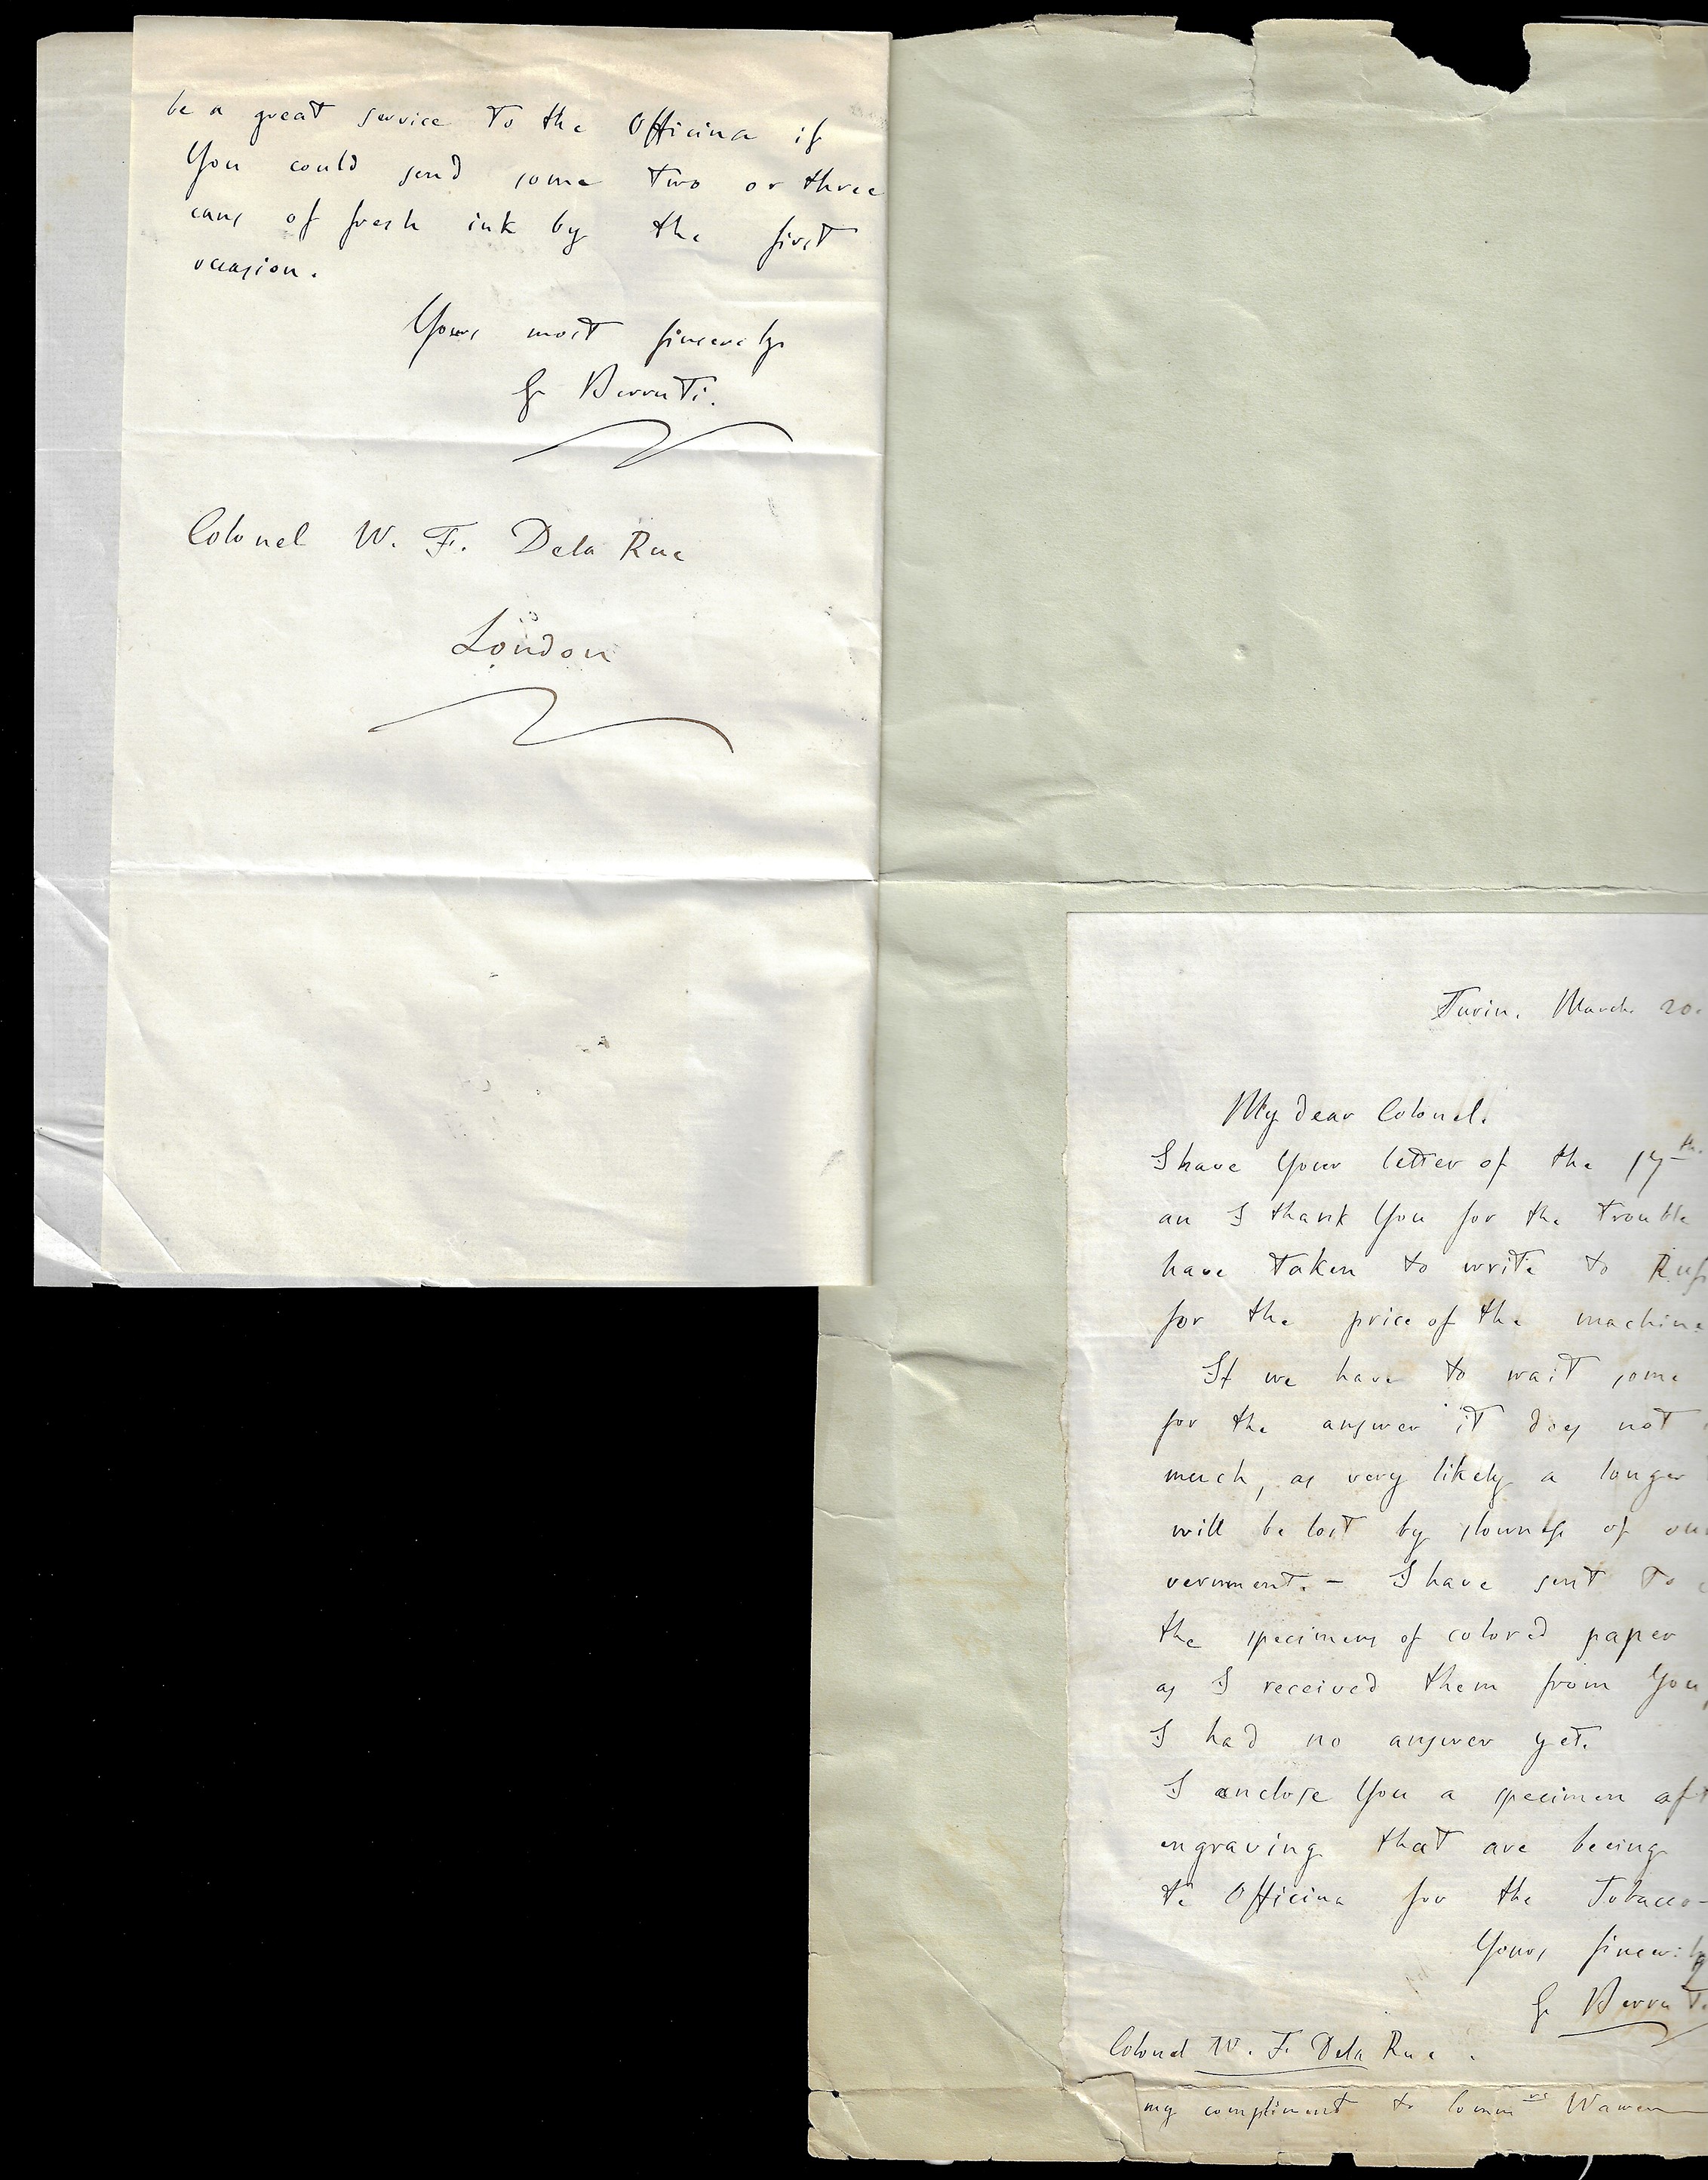 be a great service to the Officina if
You could send some two or three
cans of fresh ink by the first
occasion.
Yours most sincerely
G Berruti.
Colonel W. F. Dela Rue
London
Turin. March. 20.
My dear Colonel.
I have Your letter of the 17th.
an I thank You for the trouble
have taken to write to
for the price of the machine
If we have to wait some
for the answer it does not
much, as very likely a longer
will be lost by slowness of our
vernment. - I have sent to
the specimens of colored paper
as I received them from You,
I had no answer yet.
I enclose You a specimen aft
engraving that are beeing
te Officina for the Tobacco-
Yours sincerely
G Berruti
Colonel W. F. Dela Rue.
my compliment to Commre